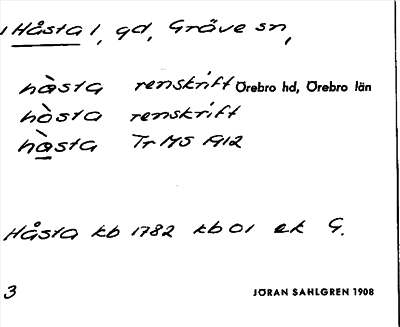 Håsta 1, gd, Gräve sn,
hàsta renskrift Örebro hd, Örebro län
hòsta renskrift
hàsta Tr MS 1912
Håsta kb 1782 kb 01 ek G.
3 JÖRAN SAHLGREN 1908